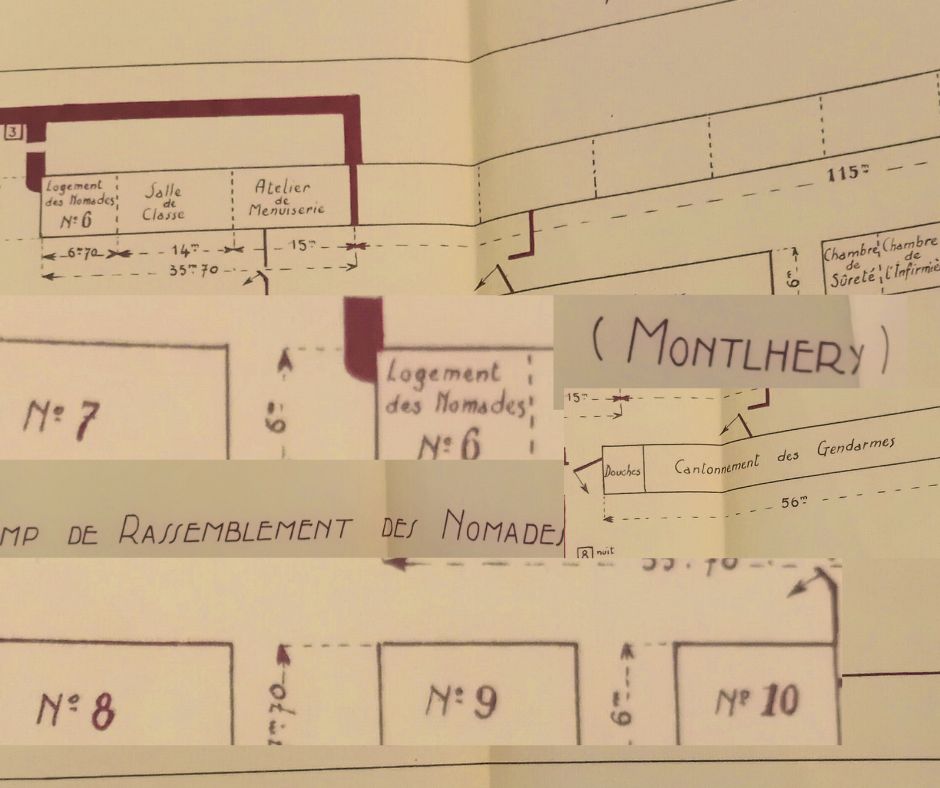 3
Logement
des Nomades
Nº 6
Salle
de
Classe
Atelier
de
Menuiserie
6ᵐ70
14ᵐ
15ᵐ
35ᵐ70
115ᵐ
6ᵐ
Chambre
de
Sûreté
Chambre
de
l'Infirmiè
Nº 7
6ᵐ
Logement
des Nomades
Nº 6
( MONTLHERY )
15ᵐ
Douches
Cantonnement des Gendarmes
56ᵐ
8 nuit
MP DE RASSEMBLEMENT DES NOMADES
Nº 8
ᵐ70
Nº 9
6ᵐ
Nº 10